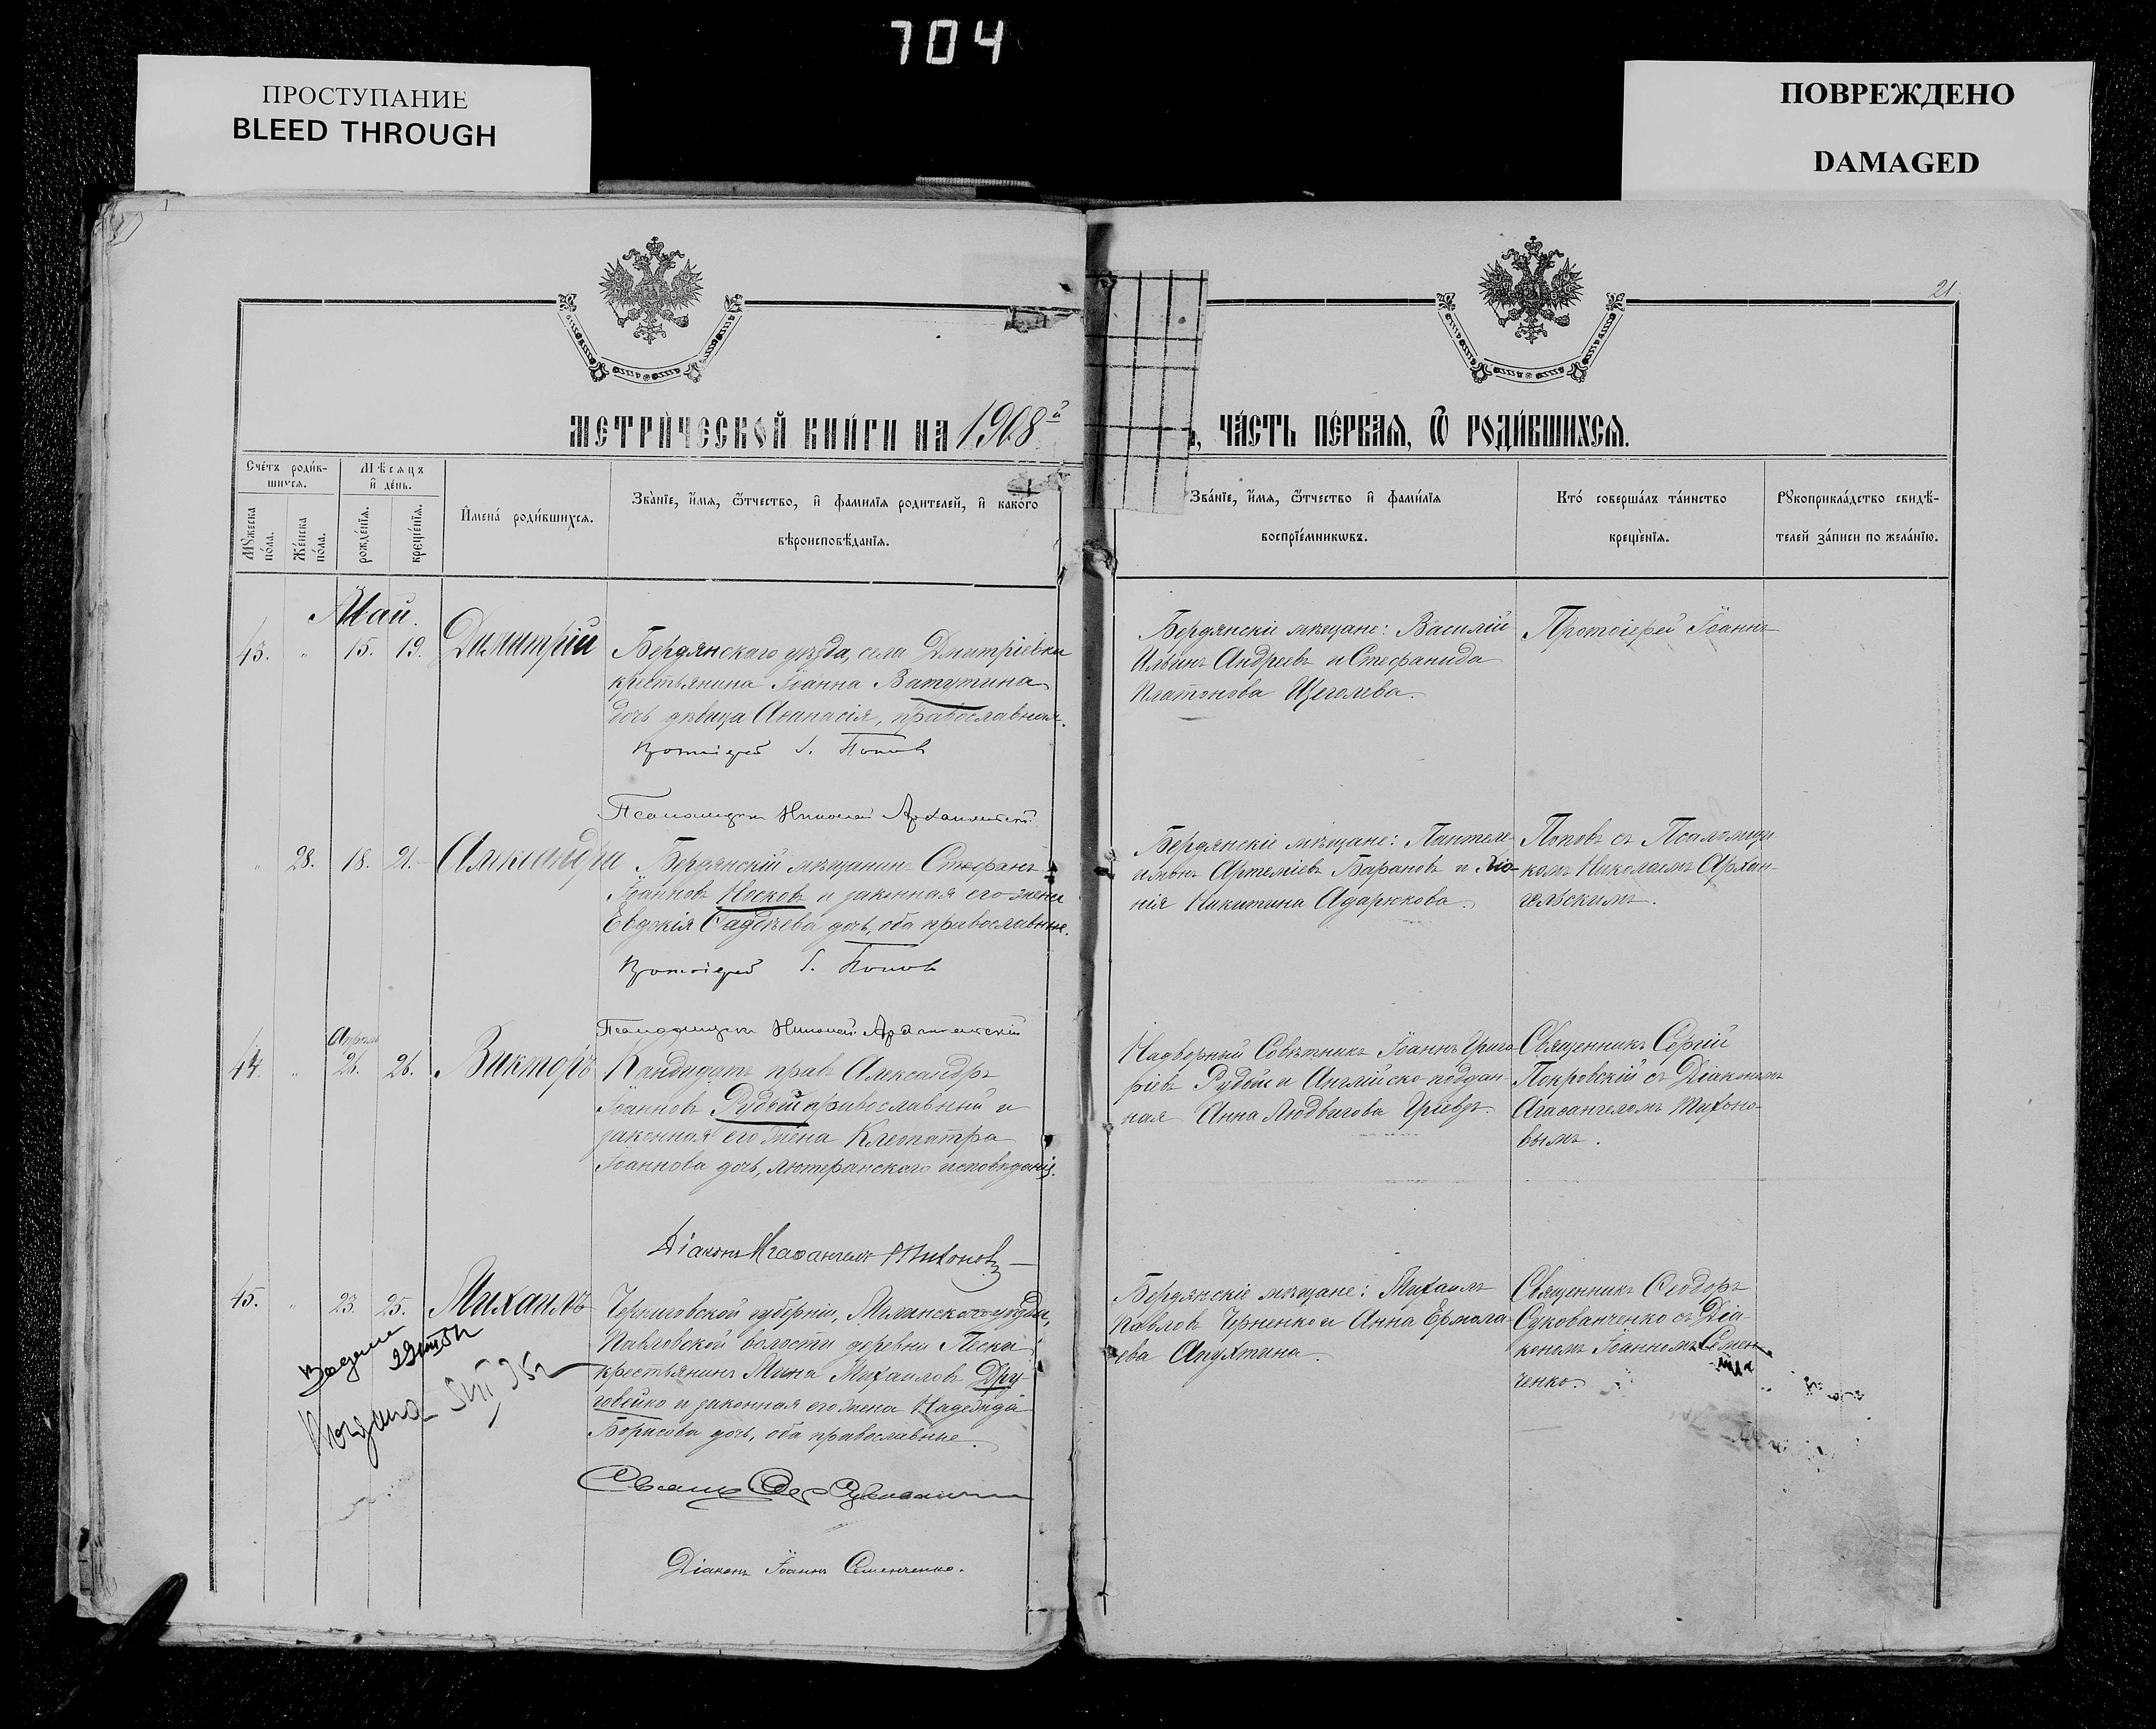 704
ПРОСТУПАНИЕ
BLEED THROUGH
ПОВРЕЖДЕНО
DAMAGED
21
МЕТРИ́ЧЕСКОЙ КНИ́ГИ НА 1908й
, ЧА́СТЬ ПЕ́РВАЯ, Ѿ РОДИ́ВШИХСЯ.
Сче́тъ роди́в-
шихся.
Мѣсяцъ
и҆ де́нь.
Мꙋжеска по́ла.
Же́нска по́ла.
рожде́нїя.
креще́нїя.
И҆мена́ роди́вшихся.
Зва́нїе, и҆́мя, ѻ҆́тчество, и҆ фамилїя родителей, и҆ како́го
вѣроисповѣ́данїя.
Зва́нїе, и҆́мя, ѻ҆́тчество и҆ фами́лїя
воспрїе́мникѡвъ.
Кто́ соверша́лъ та́инство
креще́нїя.
Рꙋкоприкла́дство свидѣ́-
телей за́писи по жела́нїю.
Май.
43. " 15. 19. Димитрій
Бердянскаго уѣзда, села Дмитріевки
крестьянина Іоанна Ватутина
дочь дѣвица Аѳанасія, православная.
Протоіерей І. Попов
Псаломщик Николай Архангельскій
Бердянскіе мѣщане: Василій
Ильинъ Андреевъ и Стефанида
Платонова Щеголева.
Протоіерей Іоаннъ
" 28. 18. 21. Александра
Бердянскій мѣщанинъ Стефанъ
Іоанновъ Носковъ и законная его жена
Евдокія Фаддѣева дочь, оба православные.
Протоіерей І. Попов
Псаломщик Николай Архангельскій
Бердянскіе мѣщане: Пантеле-
имонъ Артеміевъ Барановъ и
нія Никитина Адарюкова.
Поповъ съ Псаломщи-
комъ Николаемъ Архан-
гельскимъ.
Апрель
44. " 21. 26. Викторъ
Кандидатъ правъ Александръ
Іоанновъ Рудый православный и
законная его жена Клеопатра
Іоаннова дочь, лютеранскаго исповѣданія.
Діаконъ Агаѳангелъ Тихоновъ
Надворный Совѣтникъ Іоаннъ Григо-
ріевъ Рудый и Англійско-поддан-
ная Анна Людвигова Гріевзъ.
Священникъ Сергій
Покровскій съ Діакономъ
Агаѳангеломъ Тихоно-
вымъ.
45. " 23. 25. Михаилъ
Черниговской губерніи, Мглинскаго уѣзда,
Павловской волости деревни Пески
крестьянинъ Мина Михаиловъ Дру-
говейко и законная его жена Надежда
Борисова дочь, оба православные.
Діаконъ Іоаннъ Семенченко.
Бердянскіе мѣщане: Михаилъ
Павловъ Черненко и Анна Ермола-
ева Апухтина.
Священникъ Ѳеодоръ
Сукованченко съ Діа-
кономъ Іоанномъ Семен-
ченко.